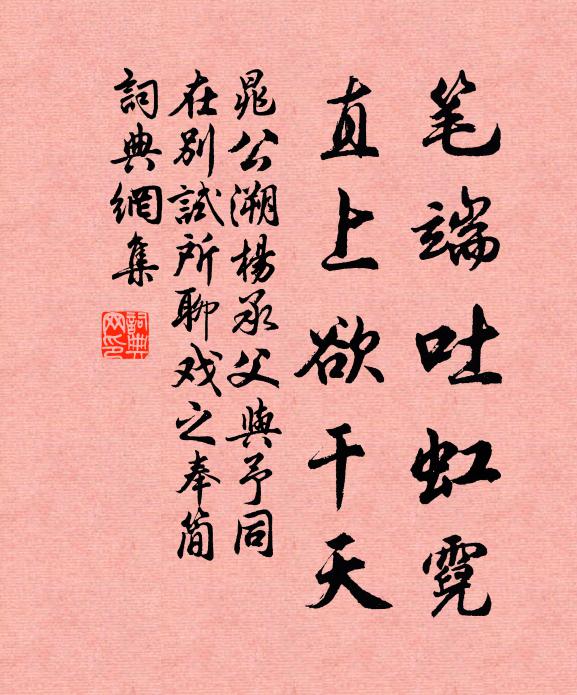 笔端吐虹霓
直上欲干天
晁公溯楊承父與予同
在別試所聊戏之奉简
詞典網集
詞典網印